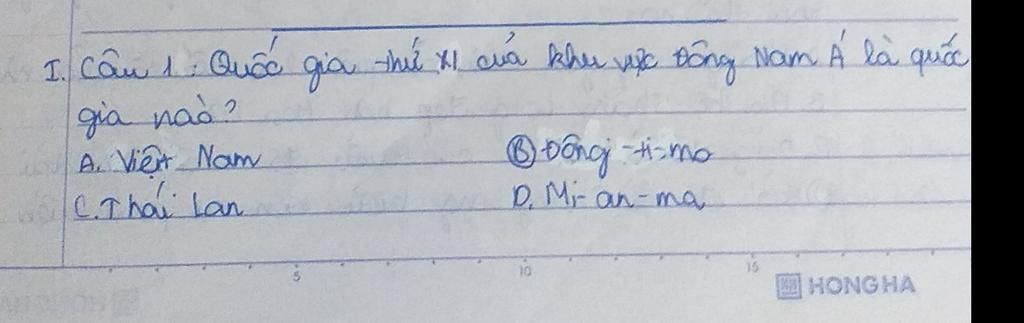 I. Câu 1: Quốc gia thứ XI của khu vực Đông Nam Á là quốc
gia nào?
A. Việt Nam B Đông -ti-mo
C. Thái Lan D. Mi-an-ma
5 10 15
HONGHA